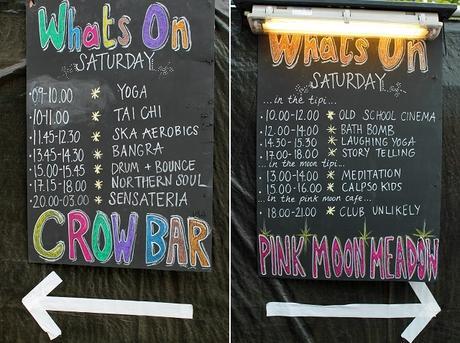 Whats On
SATURDAY
·09-10.00 * YOGA
·10-11.00 * TAI CHI
·11.45-12.30 * SKA AEROBICS
·13.45-14.30 * BANGRA
·15.00-15.45 * DRUM + BOUNCE
·17.15-18.00 * NORTHERN SOUL
·20.00-03.00 * SENSATERIA
CROW BAR
Whats On
SATURDAY
...in the tipi...
·10.00-12.00 * OLD SCHOOL CINEMA
·12.00-14.00 * BATH BOMB
·14.30-15.30 * LAUGHING YOGA
·17.00-18.00 * STORY TELLING
...in the moon tipi...
·13.00-14.00 * MEDITATION
·15.00-16.00 * CALPSO KIDS
...in the pink moon cafe...
·18.00-21.00 * CLUB UNLIKELY
PINK MOON MEADOW